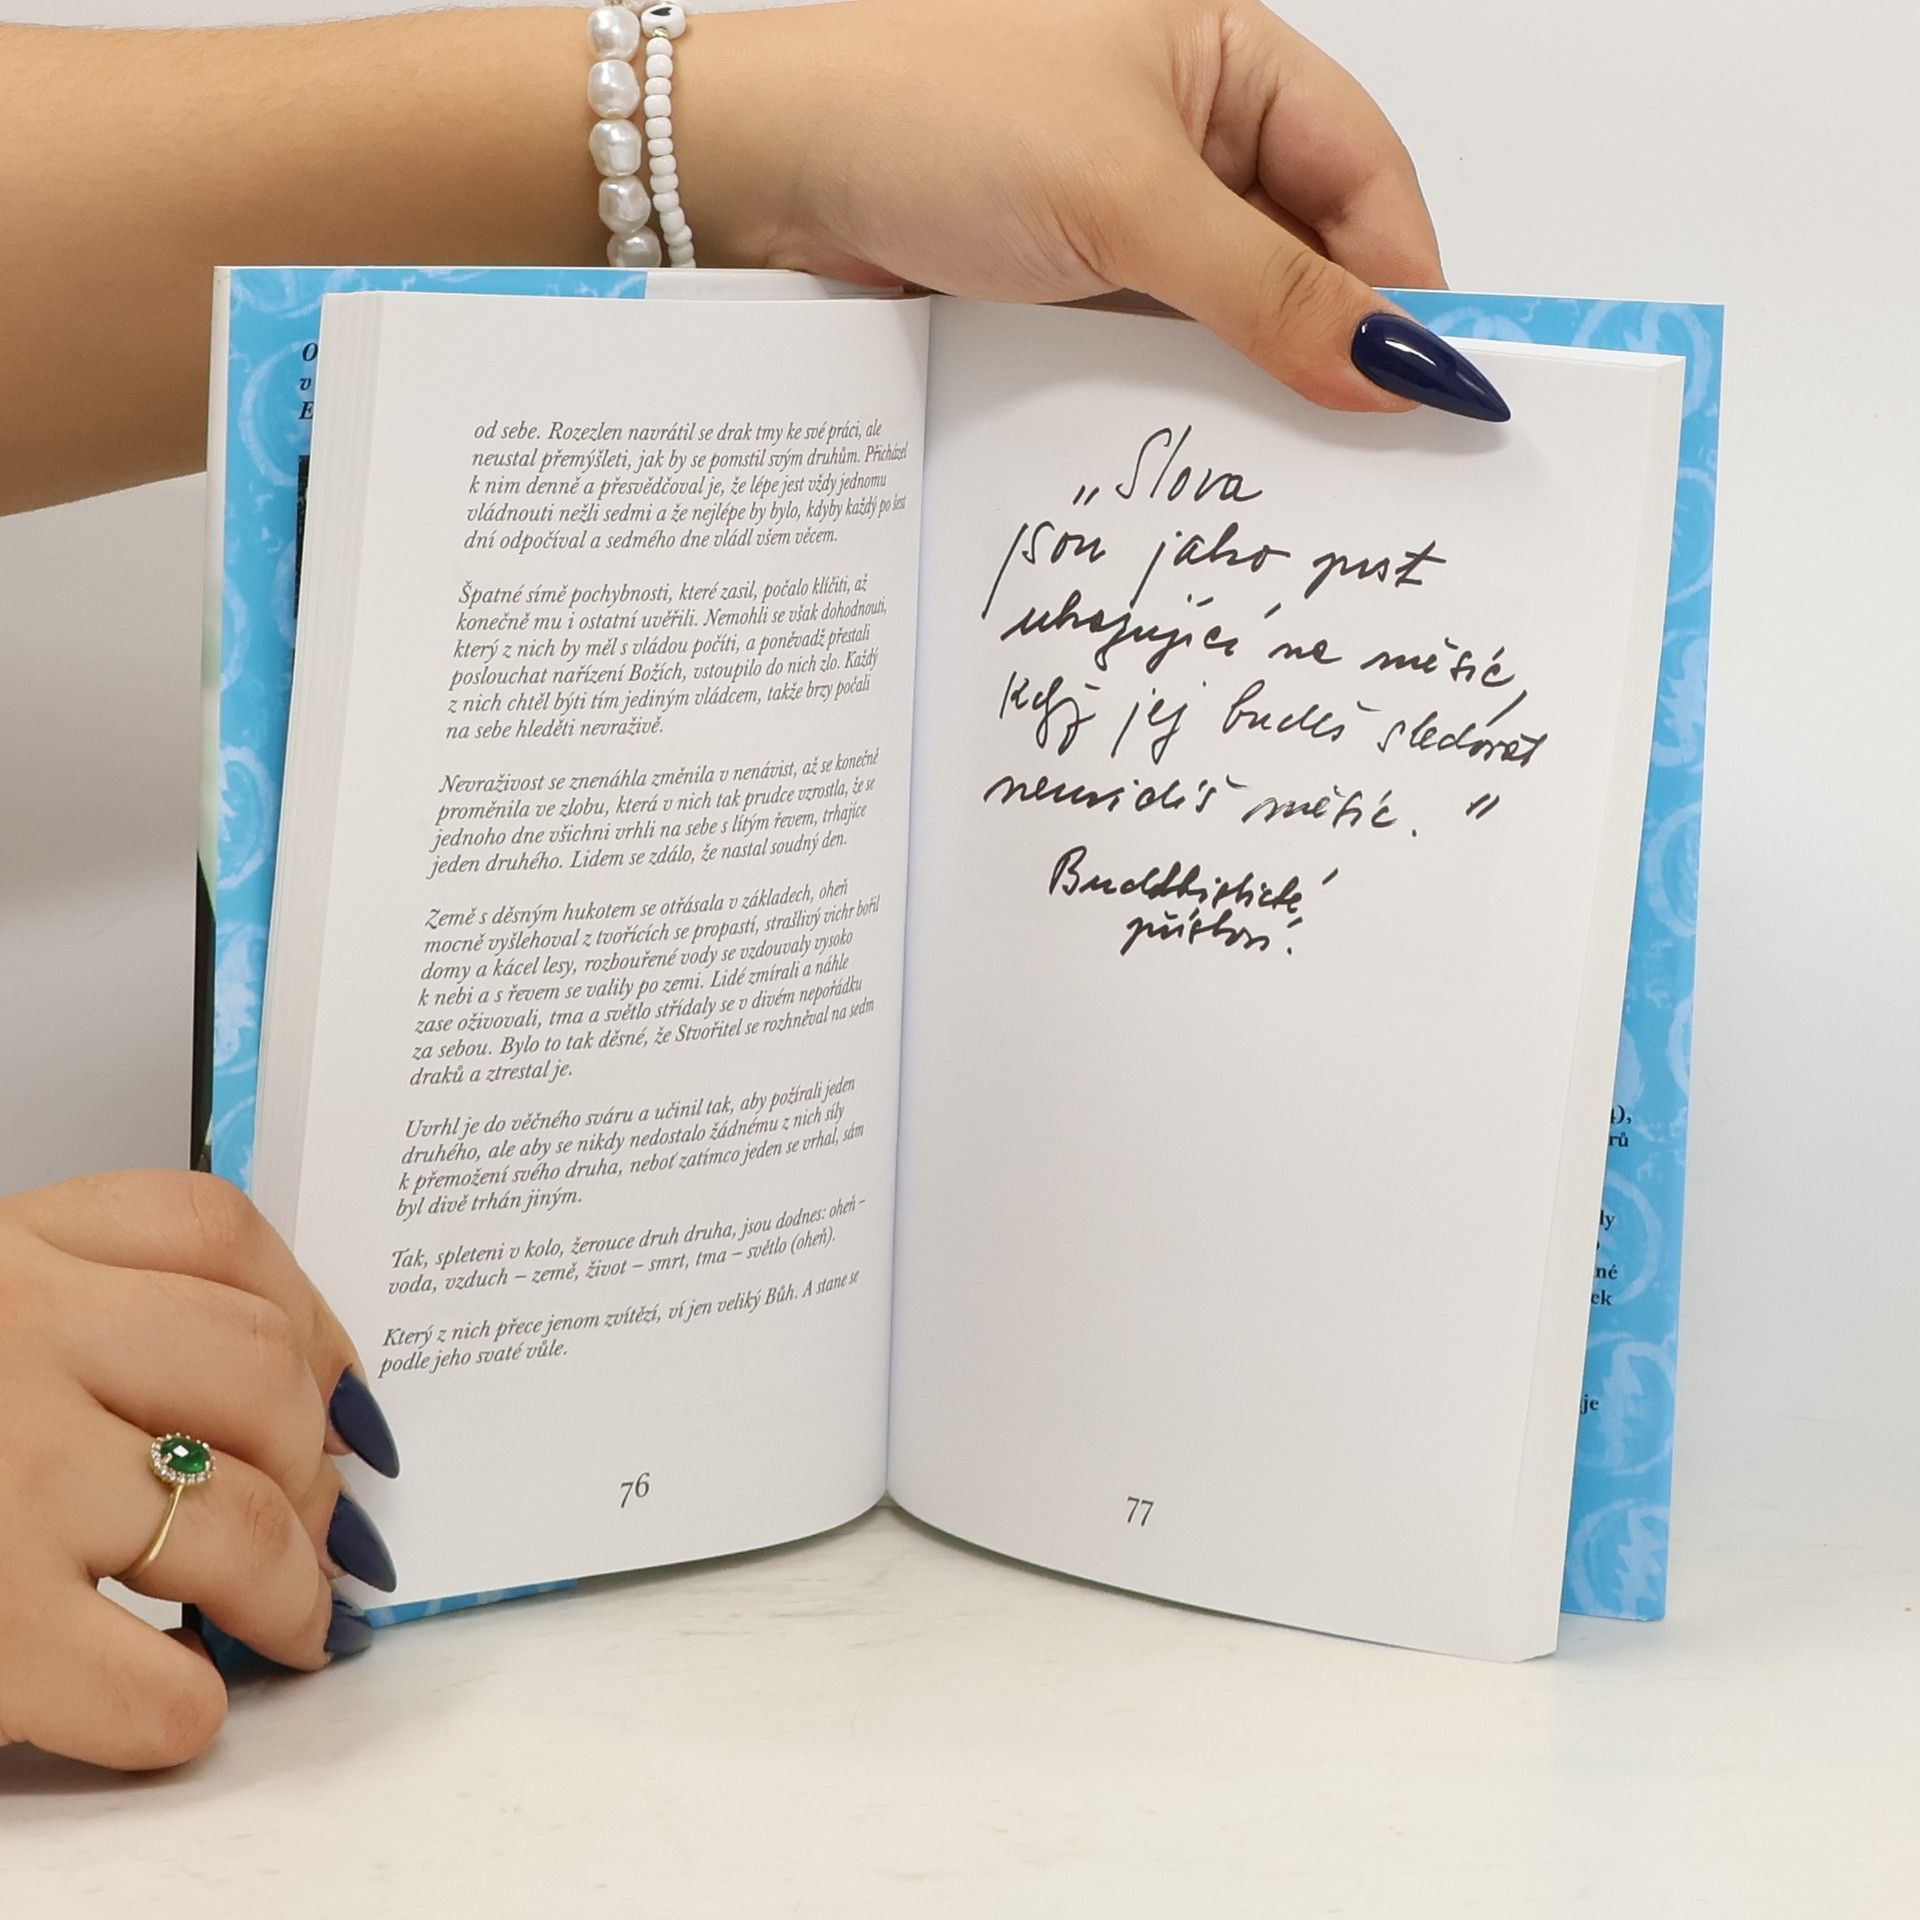 O
v
E
od sebe. Rozezlen navrátil se drak tmy ke své práci, ale
neustal přemýšleti, jak by se pomstil svým druhům. Přicházel
k nim denně a přesvědčoval je, že lépe jest vždy jednomu
vládnouti nežli sedmi a že nejlépe by bylo, kdyby každý po šest
dní odpočíval a sedmého dne vládl všem věcem.
Špatné símě pochybnosti, které zasil, počalo klíčiti, až
konečně mu i ostatní uvěřili. Nemohli se však dohodnouti,
který z nich by měl s vládou počíti, a poněvadž přestali
poslouchat nařízení Božích, vstoupilo do nich zlo. Každý
z nich chtěl býti tím jediným vládcem, takže brzy počali
na sebe hleděti nevraživě.
Nevraživost se znenáhla změnila v nenávist, až se konečně
proměnila ve zlobu, která v nich tak prudce vzrostla, že se
jednoho dne všichni vrhli na sebe s lítým řevem, trhajíce
jeden druhého. Lidem se zdálo, že nastal soudný den.
Země s děsným hukotem se otřásala v základech, oheň
mocně vyšlehoval z tvořících se propastí, strašlivý vichr bořil
domy a kácel lesy, rozbouřené vody se vzdouvaly vysoko
k nebi a s řevem se valily po zemi. Lidé zmírali a náhle
zase oživovali, tma a světlo střídaly se v divém nepořádku
za sebou. Bylo to tak děsné, že Stvořitel se rozhněval na sedm
draků a ztrestal je.
Uvrhl je do věčného sváru a učinil tak, aby požírali jeden
druhého, ale aby se nikdy nedostalo žádnému z nich síly
k přemožení svého druha, neboť zatímco jeden se vrhal, sám
byl divě trhán jiným.
Tak, spleteni v kolo, žerouce druh druha, jsou dodnes: oheň –
voda, vzduch – země, život – smrt, tma – světlo (oheň).
Který z nich přece jenom zvítězí, ví jen veliký Bůh. A stane se
podle jeho svaté vůle.
76
„Slova
jsou jako prst
ukazující na měsíc,
když jej budeš sledovat
neuvidíš měsíc."
Buddhistické
přísloví.
77
4),
rů
ly
né
ck
je